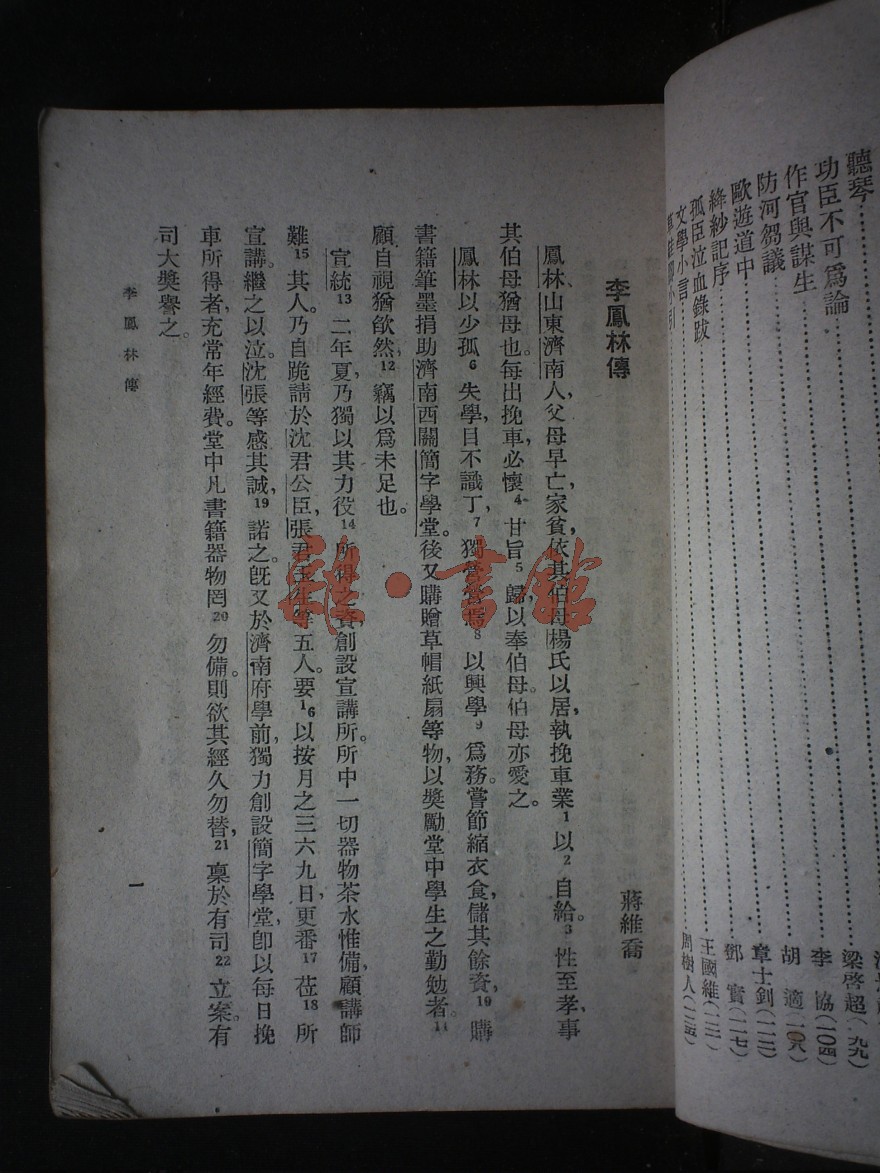 聽琴
功臣不可爲論
作官與謀生………梁啓超(九九)
防河芻議………李 協(一〇四)
歐遊道中………胡 適(一〇八)
絳紗記序………章士釗(一一二)
孤臣泣血錄跋………鄧 實(一一七)
文學小言………王國維(一二一)
小引………周樹人(一二五)
李鳳林傳
蔣維喬
鳳林、山東濟南人,父母早亡,家貧,依其伯母楊氏以居,執挽車業1以2自給。3性至孝,事
其伯母猶母也。每出挽車,必懷4甘旨5歸以奉伯母。伯母亦愛之。
鳳林以少孤6失學,目不識丁,7獨營營焉8以興學9爲務。嘗節縮衣食,儲其餘資,10購
書籍筆墨捐助濟南西關簡字學堂。後又購贈草帽紙扇等物,以獎勵堂中學生之勤勉者。11
顧自視猶欿然,12竊以爲未足也。
宣統13二年夏,乃獨以其力役14所得之資,創設宣講所。所中一切器物茶水惟備,顧講師
難15其人。乃自跪請於沈君公臣,張君玉生等五人。要16以按月之三六九日,更番17莅18所
宣講。繼之以泣。沈張等感其誠,19諾之。旣又於濟南府學前,獨力創設簡字學堂,卽以每日挽
車所得者,充常年經費。堂中凡書籍器物罔20勿備。則欲其經久勿替,21稟於有司22立案。有
司大獎譽之。
李鳳林傳
一
雜·書館